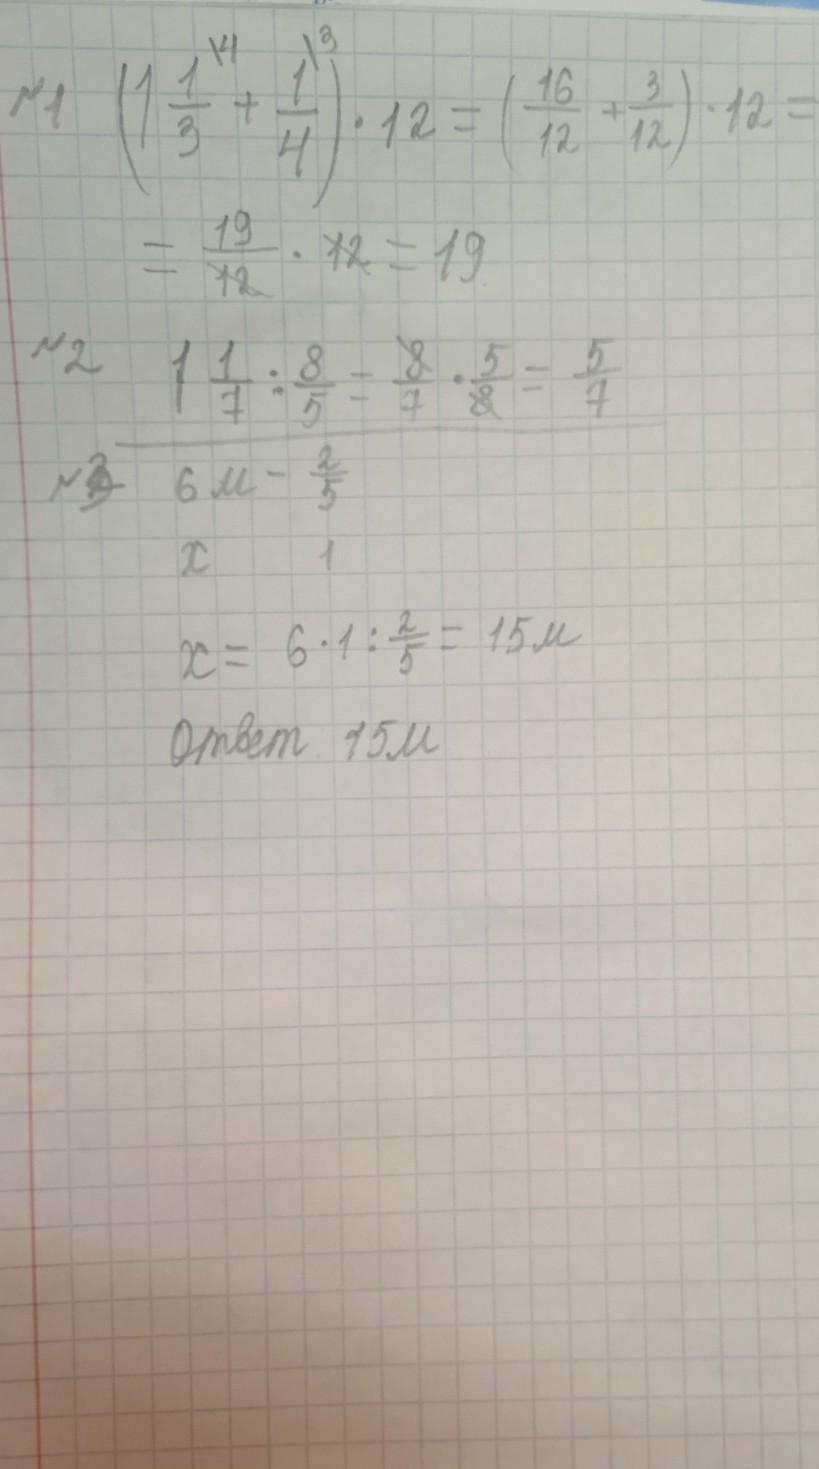 №1 (1 1/3 \4 + 1/4 \3) · 12 = (16/12 + 3/12) · 12 =
= 19/12 · 12 = 19
№2 1 1/7 : 8/5 = 8/7 · 5/8 = 5/7
№3 6 м - 2/5
x 1
x = 6 · 1 : 2/5 = 15 м
Ответ 15 м